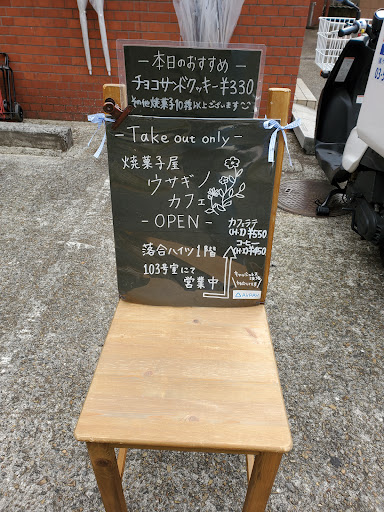 ー本日のおすすめー
チョコサンドクッキー¥330
その他焼菓子10種以上ございます
-Take out only-
焼菓子屋
ウサギノ
カフェ
-OPEN-
カフェラテ
(H・I)¥550
コーヒー
(H・I)¥450
落合ハイツ1階
103号室にて
営業中